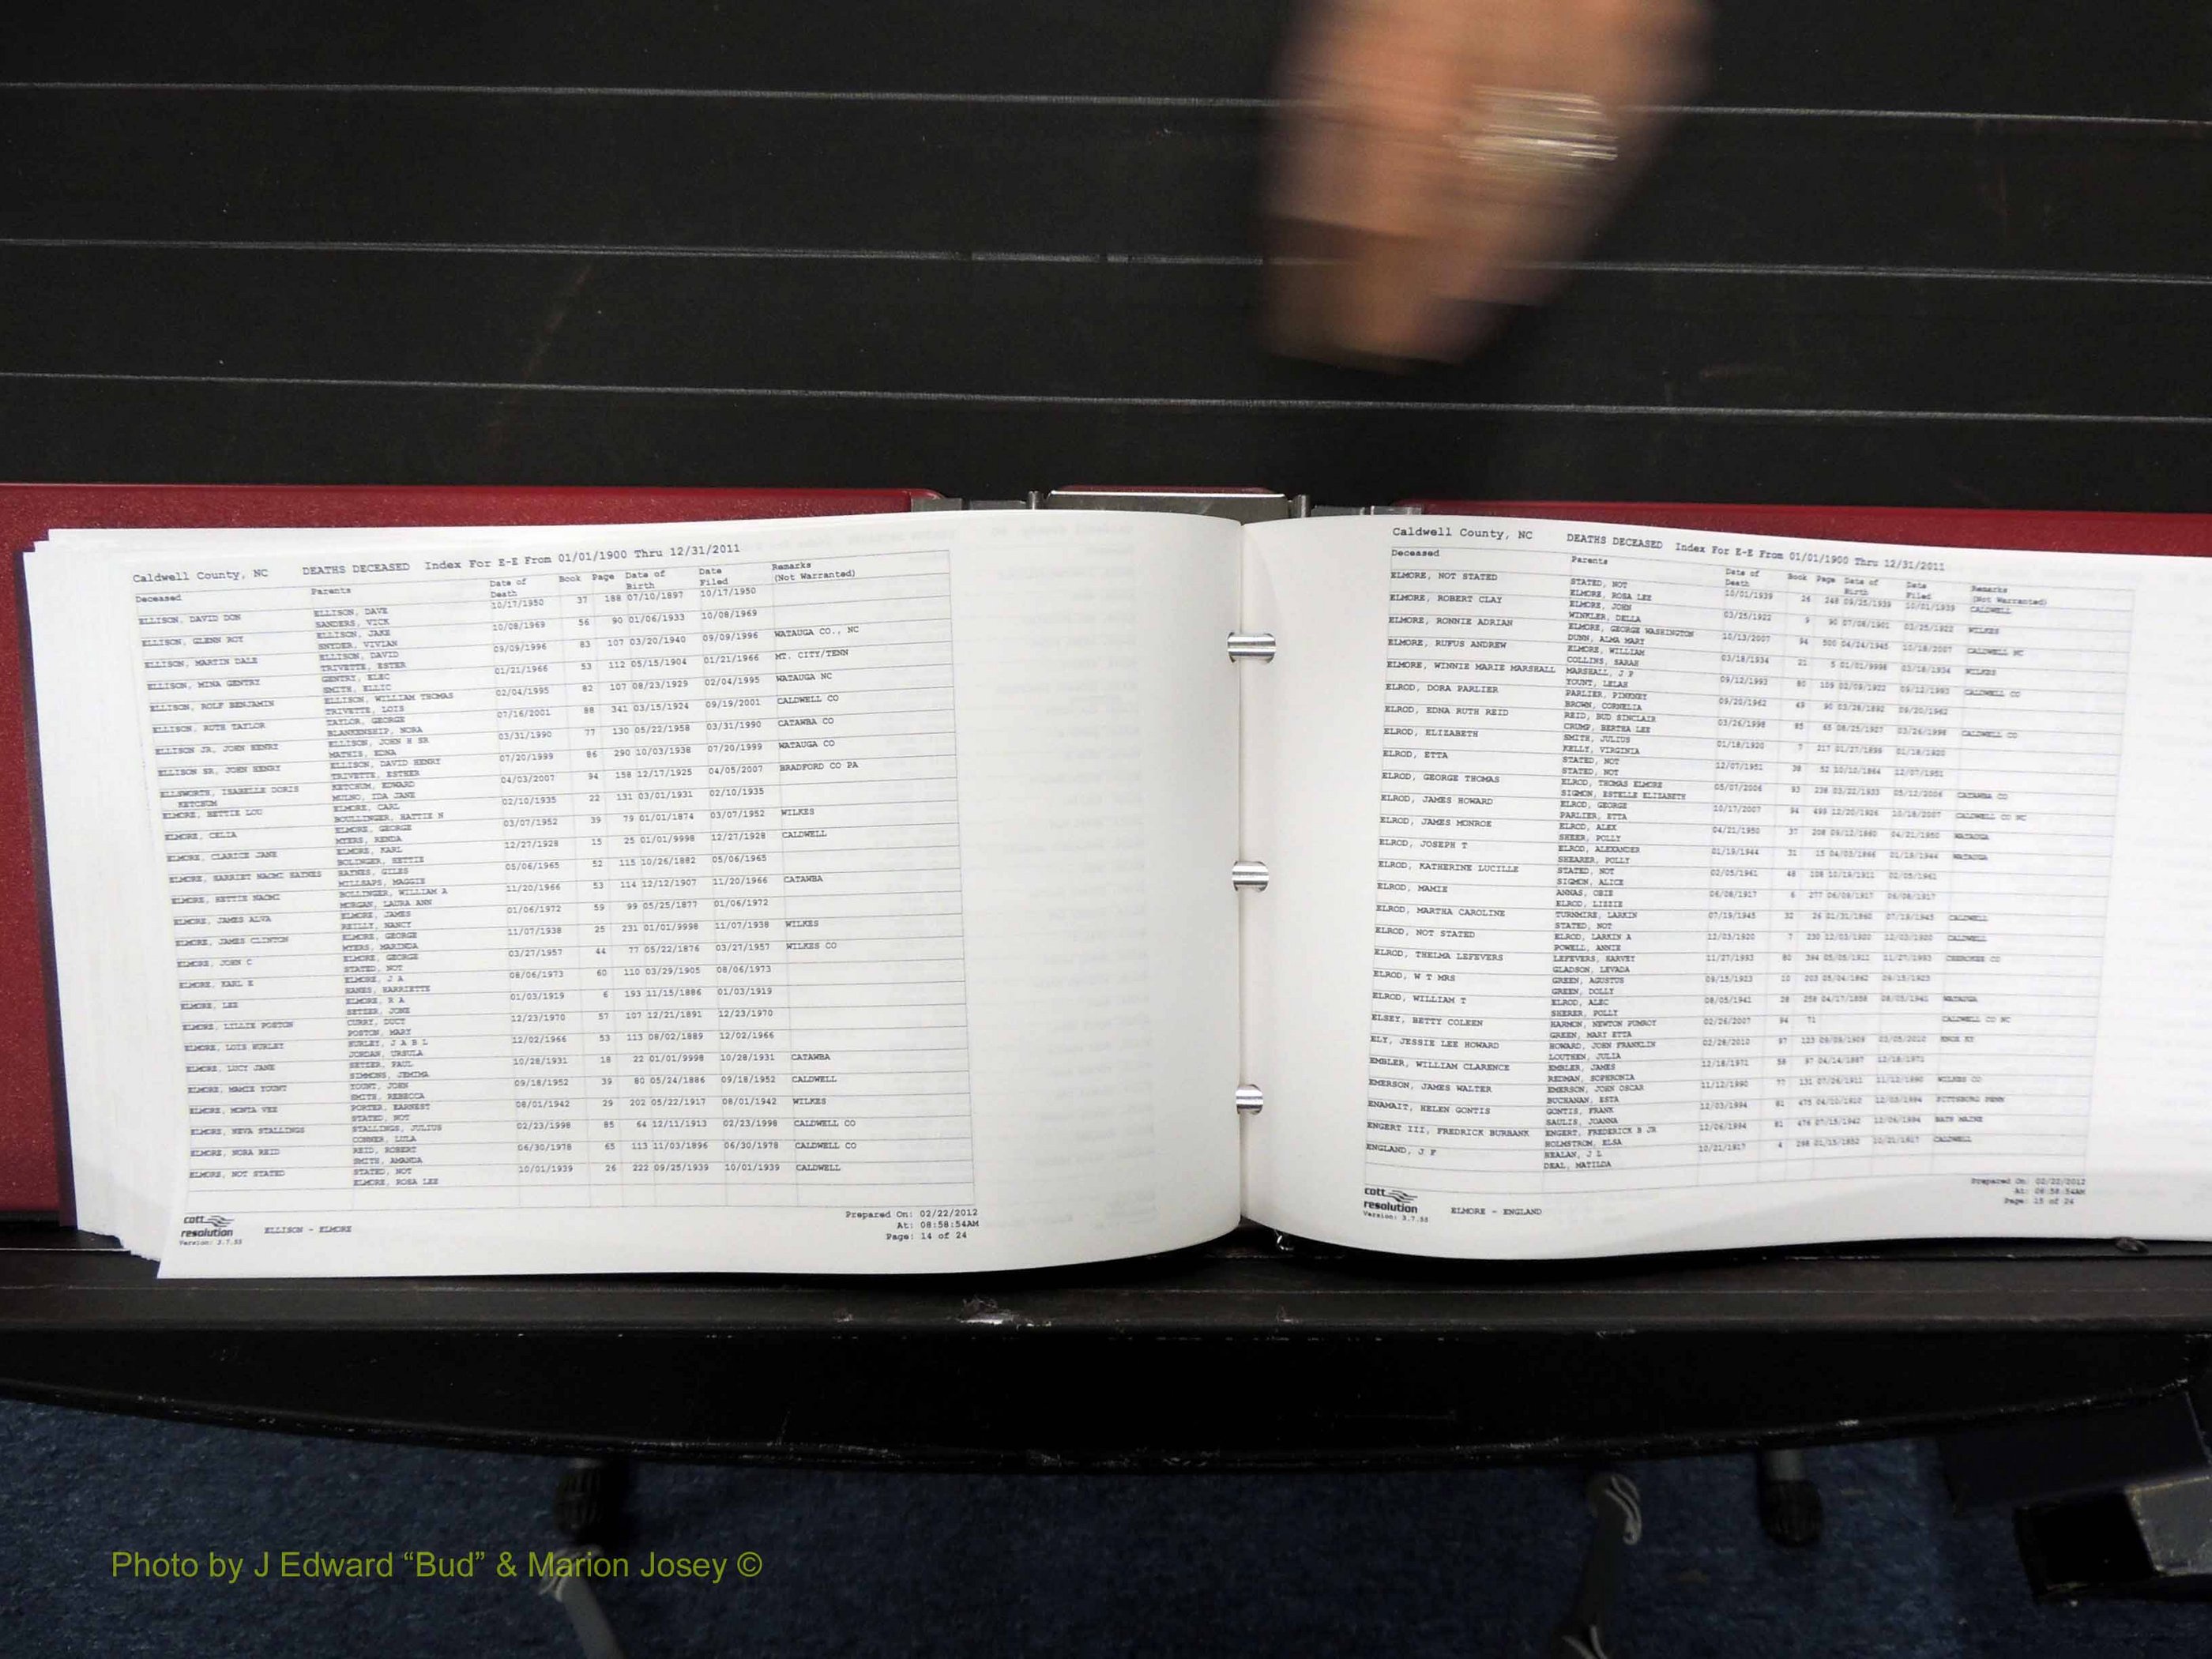 Caldwell County, NC DEATHS DECEASED Index For E-E From 01/01/1900 Thru 12/31/2011
Deceased Parents Date of Death Book Page Date of Birth Date Filed Remarks (Not Warranted)
ELLISON, DAVID DON ELLISON, DAVE 10/17/1950 37 188 07/10/1897 10/17/1950
SANDERS, VICK
ELLISON, GLENN ROY ELLISON, JAKE 10/08/1969 56 90 01/06/1933 10/08/1969
SNYDER, VIVIAN
ELLISON, MARTIN DALE ELLISON, DAVID 09/09/1996 83 107 03/20/1940 09/09/1996 WATAUGA CO., NC
TRIVETTE, ESTER
ELLISON, MINA GENTRY GENTRY, ELEC 01/21/1966 53 112 05/15/1904 01/21/1966 MT. CITY/TENN
SMITH, ELLIC
ELLISON, ROLF BENJAMIN ELLISON, WILLIAM THOMAS 02/04/1995 82 107 08/23/1929 02/04/1995 WATAUGA NC
TRIVETTE, LOIS
ELLISON, RUTH TAYLOR TAYLOR, GEORGE 07/16/2001 88 341 03/15/1924 09/19/2001 CALDWELL CO
BLANKENSHIP, NORA
ELLISON JR, JOHN HENRY ELLISON, JOHN H SR 03/31/1990 77 130 05/22/1958 03/31/1990 CATAWBA CO
MATHIS, EDNA
ELLISON SR, JOHN HENRY ELLISON, DAVID HENRY 07/20/1999 86 290 10/03/1938 07/20/1999 WATAUGA CO
TRIVETTE, ESTHER
ELLSWORTH, ISABELLE DORIS KETCHUM, EDWARD 04/03/2007 94 158 12/17/1925 04/05/2007 BRADFORD CO PA
KETCHUM MULNO, IDA JANE
ELMORE, BETTIE LOU ELMORE, CARL 02/10/1935 22 131 03/01/1931 02/10/1935
BOULLINGER, HATTIE N
ELMORE, CELIA ELMORE, GEORGE 03/07/1952 39 79 01/01/1874 03/07/1952 WILKES
MYERS, RENDA
ELMORE, CLARICE JANE ELMORE, KARL 12/27/1928 15 25 01/01/9998 12/27/1928 CALDWELL
BOLINGER, HETTIE
ELMORE, HARRIET NAOMI HAINES HAINES, GILES 05/06/1965 52 115 10/26/1882 05/06/1965
MILLSAPS, MAGGIE
ELMORE, HETTIE NAOMI BOLLINGER, WILLIAM A 11/20/1966 53 114 12/12/1907 11/20/1966 CATAWBA
MORGAN, LAURA ANN
ELMORE, JAMES ALVA ELMORE, JAMES 01/06/1972 59 99 05/25/1877 01/06/1972
REILLY, NANCY
ELMORE, JAMES CLINTON ELMORE, GEORGE 11/07/1938 25 231 01/01/9998 11/07/1938 WILKES
MYERS, MARINDA
ELMORE, JOHN C ELMORE, GEORGE 03/27/1957 44 77 05/22/1876 03/27/1957 WILKES CO
STATED, NOT
ELMORE, KARL E ELMORE, J A 08/06/1973 60 110 03/29/1905 08/06/1973
HANES, HARRIETTE
ELMORE, LEE ELMORE, R A 01/03/1919 6 193 11/15/1886 01/03/1919
SETZER, JUNE
ELMORE, LILLIE POSTON CURRY, DOCT 12/23/1970 57 107 12/21/1891 12/23/1970
POSTON, MARY
ELMORE, LOIS HURLEY HURLEY, J A B L 12/02/1966 53 113 08/02/1889 12/02/1966
JORDAN, URSULA
ELMORE, LUCY JANE SETZER, PAUL 10/28/1931 18 22 01/01/9998 10/28/1931 CATAWBA
SIMMONS, JEMIMA
ELMORE, MAMIE YOUNT YOUNT, JOHN 09/18/1952 39 80 05/24/1886 09/18/1952 CALDWELL
SMITH, REBECCA
ELMORE, MONTA VEE PORTER, EARNEST 08/01/1942 29 202 05/22/1917 08/01/1942 WILKES
STATED, NOT
ELMORE, NEVA STALLINGS STALLINGS, JULIUS 02/23/1998 85 64 12/11/1913 02/23/1998 CALDWELL CO
CONNER, LULA
ELMORE, NORA REID REID, ROBERT 06/30/1978 65 113 11/03/1896 06/30/1978 CALDWELL CO
SMITH, AMANDA
ELMORE, NOT STATED STATED, NOT 10/01/1939 26 222 09/25/1939 10/01/1939 CALDWELL
ELMORE, ROSA LEE
cott
resolution
Version: 3.7.55
ELLISON - ELMORE
Prepared On: 02/22/2012
At: 08:58:54AM
Page: 14 of 24
Caldwell County, NC DEATHS DECEASED Index For E-E From 01/01/1900 Thru 12/31/2011
Deceased Parents Date of Death Book Page Date of Birth Date Filed Remarks (Not Warranted)
ELMORE, NOT STATED STATED, NOT 10/01/1939 26 248 09/25/1939 10/01/1939 CALDWELL
ELMORE, ROSA LEE
ELMORE, ROBERT CLAY ELMORE, JOHN 03/25/1922 9 90 07/08/1901 03/25/1922 WILKES
WINKLER, DELLA
ELMORE, RONNIE ADRIAN ELMORE, GEORGE WASHINGTON 10/13/2007 94 500 04/24/1945 10/18/2007 CALDWELL NC
DUNN, ALMA MARY
ELMORE, RUFUS ANDREW ELMORE, WILLIAM 03/18/1934 21 5 01/01/9998 03/18/1934 WILKES
COLLINS, SARAH
ELMORE, WINNIE MARIE MARSHALL MARSHALL, J P 09/12/1993 80 109 02/09/1922 09/12/1993 CALDWELL CO
YOUNT, LELAH
ELROD, DORA PARLIER PARLIER, PINKNEY 09/20/1962 49 90 03/28/1892 09/20/1962
BROWN, CORNELIA
ELROD, EDNA RUTH REID REID, BUD SINCLAIR 03/26/1998 85 65 08/25/1927 03/26/1998 CALDWELL CO
CRUMP, BERTHA LEE
ELROD, ELIZABETH SMITH, JULIUS 01/18/1920 7 217 01/27/1896 01/18/1920
KELLY, VIRGINIA
ELROD, ETTA STATED, NOT 12/07/1951 38 52 10/10/1864 12/07/1951
STATED, NOT
ELROD, GEORGE THOMAS ELROD, THOMAS ELMORE 05/07/2006 93 238 03/22/1933 05/12/2006 CATAWBA CO
SIGMON, ESTELLE ELIZABETH
ELROD, JAMES HOWARD ELROD, GEORGE 10/17/2007 94 499 12/20/1926 10/18/2007 CALDWELL CO NC
PARLIER, ETTA
ELROD, JAMES MONROE ELROD, ALEX 04/21/1950 37 208 09/12/1860 04/21/1950 WATAUGA
SHEER, POLLY
ELROD, JOSEPH T ELROD, ALEXANDER 01/19/1944 31 15 04/03/1866 01/19/1944 WATAUGA
SHEARER, POLLY
ELROD, KATHERINE LUCILLE STATED, NOT 02/05/1961 48 108 10/19/1911 02/05/1961
SIGMON, ALICE
ELROD, MAMIE ANNAS, OBIE 06/08/1917 6 277 06/08/1917 06/08/1917
ELROD, LIZZIE
ELROD, MARTHA CAROLINE TURNMIRE, LARKIN 07/19/1945 32 26 01/31/1860 07/19/1945 CALDWELL
STATED, NOT
ELROD, NOT STATED ELROD, LARKIN A 12/03/1920 7 230 12/03/1920 12/03/1920 CALDWELL
POWELL, ANNIE
ELROD, THELMA LEFEVERS LEFEVERS, HARVEY 11/27/1993 80 394 05/05/1911 11/27/1993 CHEROKEE CO
GLADSON, LEVADA
ELROD, W T MRS GREEN, AGUSTUS 09/15/1923 10 203 05/04/1862 09/15/1923
GREEN, DOLLY
ELROD, WILLIAM T ELROD, ALEC 08/05/1941 28 258 04/17/1858 08/05/1941 WATAUGA
SHERER, POLLY
ELSEY, BETTY COLEEN HARMON, NEWTON PUMROY 02/26/2007 94 71 CALDWELL CO NC
GREEN, MARY ETTA
ELY, JESSIE LEE HOWARD HOWARD, JOHN FRANKLIN 02/28/2010 97 123 09/09/1909 03/05/2010 KNOX KY
LOUTHEN, JULIA
EMBLER, WILLIAM CLARENCE EMBLER, JAMES 12/18/1971 58 97 04/14/1887 12/18/1971
REDMAN, SOPHRONIA
EMERSON, JAMES WALTER EMERSON, JOHN OSCAR 11/12/1990 77 131 07/26/1911 11/12/1990 WILKES CO
BUCHANAN, ESTA
ENAMAIT, HELEN GONTIS GONTIS, FRANK 12/03/1994 81 475 04/10/1910 12/03/1994 PITTSBURG PENN
SAULIS, JOANNA
ENGERT III, FREDRICK BURBANK ENGERT, FREDERICK B JR 12/06/1994 81 476 07/15/1942 12/06/1994 BATH MAINE
HOLMSTROM, ELSA
ENGLAND, J F HEALAN, J L 10/21/1917 4 298 01/15/1852 10/21/1917 CALDWELL
DEAL, MATILDA
cott
resolution
Version: 3.7.55
ELMORE - ENGLAND
Prepared On: 02/22/2012
At: 08:58:54AM
Page: 15 of 24
Photo by J Edward “Bud” & Marion Josey ©